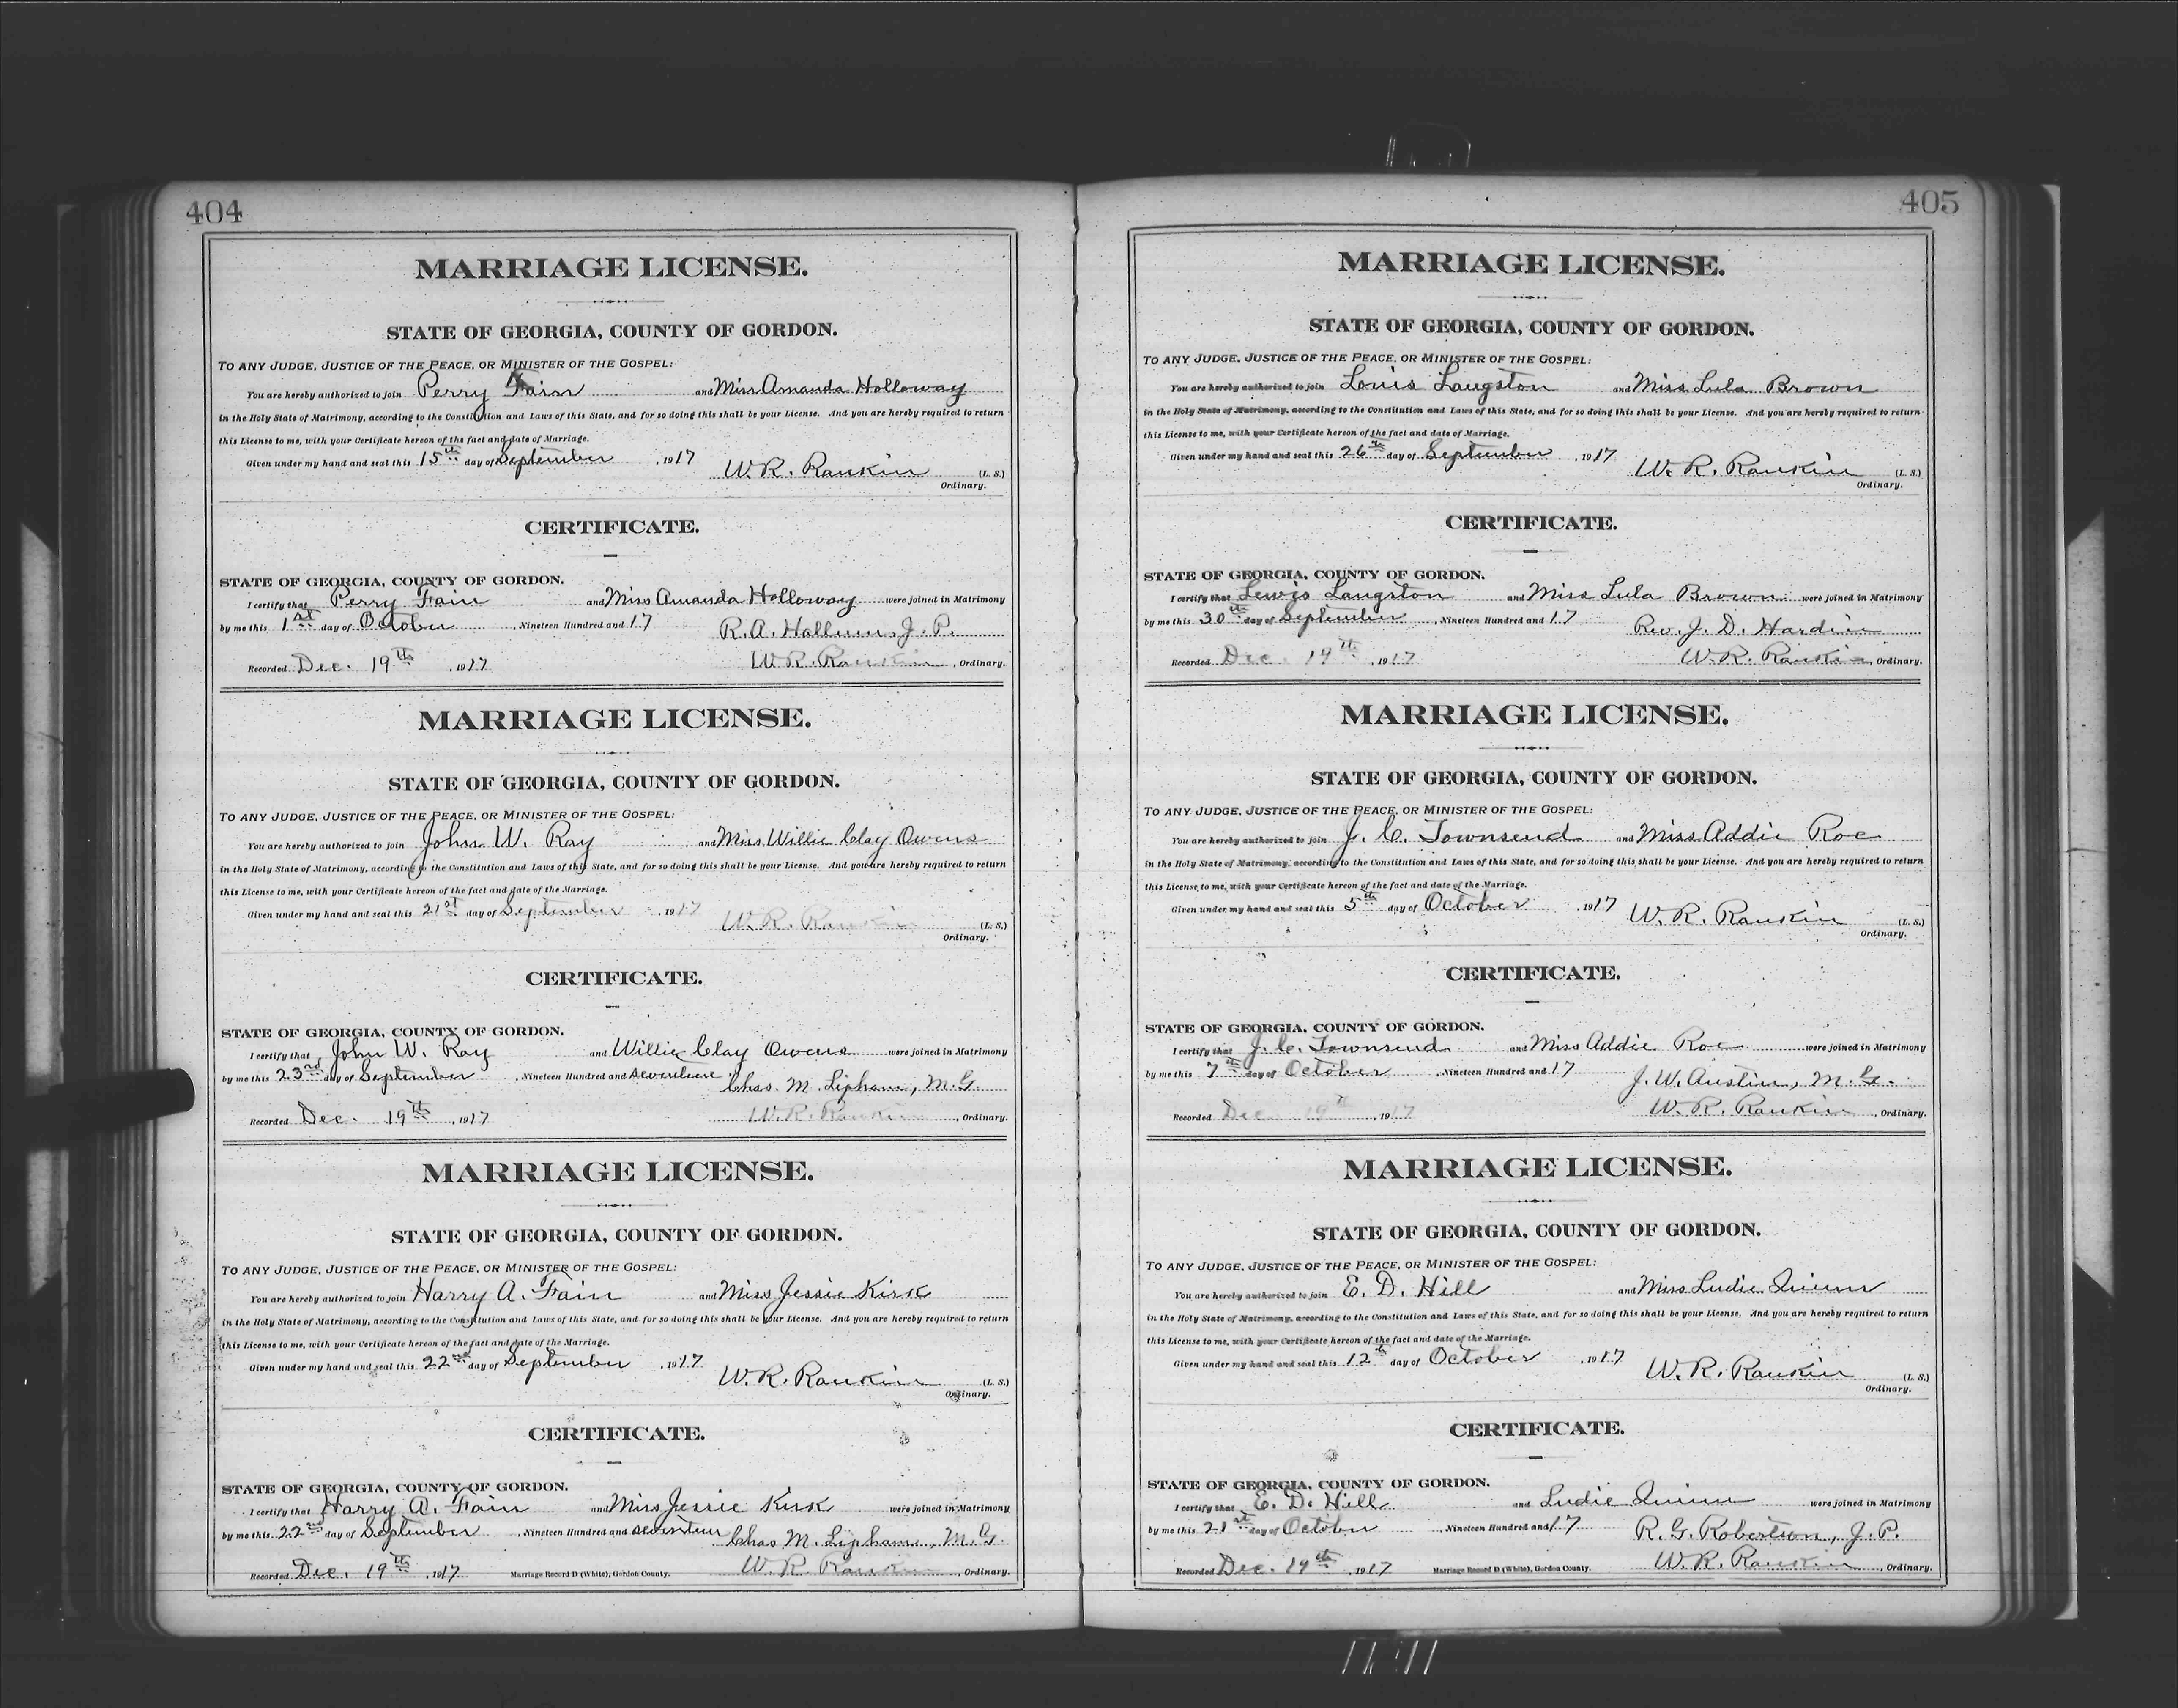 404
MARRIAGE LICENSE.
STATE OF GEORGIA, COUNTY OF GORDON.
TO ANY JUDGE, JUSTICE OF THE PEACE, OR MINISTER OF THE GOSPEL:
You are hereby authorized to join Perry Fain and Miss Amanda Holloway
in the Holy State of Matrimony, according to the Constitution and Laws of this State, and for so doing this shall be your License. And you are hereby required to return
this License to me, with your Certificate hereon of the fact and date of Marriage.
Given under my hand and seal this 15th day of September, 1917 W. R. Rankin (L. S.)
Ordinary.
CERTIFICATE.
STATE OF GEORGIA, COUNTY OF GORDON.
I certify that Perry Fain and Miss Amanda Holloway were joined in Matrimony
by me this 1st day of October, Nineteen Hundred and 17 R. A. Hallum, J. P.
Recorded Dec. 19th, 1917 W. R. Rankin, Ordinary.
MARRIAGE LICENSE.
STATE OF GEORGIA, COUNTY OF GORDON.
TO ANY JUDGE, JUSTICE OF THE PEACE, OR MINISTER OF THE GOSPEL:
You are hereby authorized to join John W. Ray and Miss Willie Clay Owens
in the Holy State of Matrimony, according to the Constitution and Laws of this State, and for so doing this shall be your License. And you are hereby required to return
this License to me, with your Certificate hereon of the fact and date of the Marriage.
Given under my hand and seal this 21st day of September, 1917 W. R. Rankin (L. S.)
Ordinary.
CERTIFICATE.
STATE OF GEORGIA, COUNTY OF GORDON.
I certify that John W. Ray and Willie Clay Owens were joined in Matrimony
by me this 23rd day of September, Nineteen Hundred and seventeen Chas. M. Lipham, M. G.
Recorded Dec. 19th, 1917 W. R. Rankin, Ordinary.
MARRIAGE LICENSE.
STATE OF GEORGIA, COUNTY OF GORDON.
TO ANY JUDGE, JUSTICE OF THE PEACE, OR MINISTER OF THE GOSPEL:
You are hereby authorized to join Harry A. Fain and Miss Jessie Kirk
in the Holy State of Matrimony, according to the Constitution and Laws of this State, and for so doing this shall be your License. And you are hereby required to return
this License to me, with your Certificate hereon of the fact and date of the Marriage.
Given under my hand and seal this 22nd day of September, 1917 W. R. Rankin (L. S.)
Ordinary.
CERTIFICATE.
STATE OF GEORGIA, COUNTY OF GORDON.
I certify that Harry A. Fain and Miss Jessie Kirk were joined in Matrimony
by me this 22nd day of September, Nineteen Hundred and seventeen Chas M. Lipham, M. G.
Recorded Dec. 19th, 1917 Marriage Record D (White), Gordon County. W. R. Rankin, Ordinary.
405
MARRIAGE LICENSE.
STATE OF GEORGIA, COUNTY OF GORDON.
TO ANY JUDGE, JUSTICE OF THE PEACE, OR MINISTER OF THE GOSPEL:
You are hereby authorized to join Louis Langston and Miss Lula Brown
in the Holy State of Matrimony, according to the Constitution and Laws of this State, and for so doing this shall be your License. And you are hereby required to return
this License to me, with your Certificate hereon of the fact and date of Marriage.
Given under my hand and seal this 26th day of September, 1917 W. R. Rankin (L. S.)
Ordinary.
CERTIFICATE.
STATE OF GEORGIA, COUNTY OF GORDON.
I certify that Lewis Langston and Miss Lula Brown were joined in Matrimony
by me this 30th day of September, Nineteen Hundred and 17 Rev. J. D. Hardin
Recorded Dec. 19th, 1917 W. R. Rankin, Ordinary.
MARRIAGE LICENSE.
STATE OF GEORGIA, COUNTY OF GORDON.
TO ANY JUDGE, JUSTICE OF THE PEACE, OR MINISTER OF THE GOSPEL:
You are hereby authorized to join J. C. Townsend and Miss Addie Roe
in the Holy State of Matrimony, according to the Constitution and Laws of this State, and for so doing this shall be your License. And you are hereby required to return
this License to me, with your Certificate hereon of the fact and date of the Marriage.
Given under my hand and seal this 5th day of October, 1917 W. R. Rankin (L. S.)
Ordinary.
CERTIFICATE.
STATE OF GEORGIA, COUNTY OF GORDON.
I certify that J. C. Townsend and Miss Addie Roe were joined in Matrimony
by me this 7th day of October, Nineteen Hundred and 17 J. W. Austin, M. G.
Recorded Dec 19th, 1917 W. R. Rankin, Ordinary.
MARRIAGE LICENSE.
STATE OF GEORGIA, COUNTY OF GORDON.
TO ANY JUDGE, JUSTICE OF THE PEACE, OR MINISTER OF THE GOSPEL:
You are hereby authorized to join E. D. Hill and Miss Ludie Quinn
in the Holy State of Matrimony, according to the Constitution and Laws of this State, and for so doing this shall be your License. And you are hereby required to return
this License to me, with your Certificate hereon of the fact and date of the Marriage.
Given under my hand and seal this 12th day of October, 1917 W. R. Rankin (L. S.)
Ordinary.
CERTIFICATE.
STATE OF GEORGIA, COUNTY OF GORDON.
I certify that E. D. Hill and Ludie Quinn were joined in Matrimony
by me this 21st day of October, Nineteen Hundred and 17 R. G. Robertson, J. P.
Recorded Dec. 19th, 1917 Marriage Record D (White), Gordon County. W. R. Rankin, Ordinary.